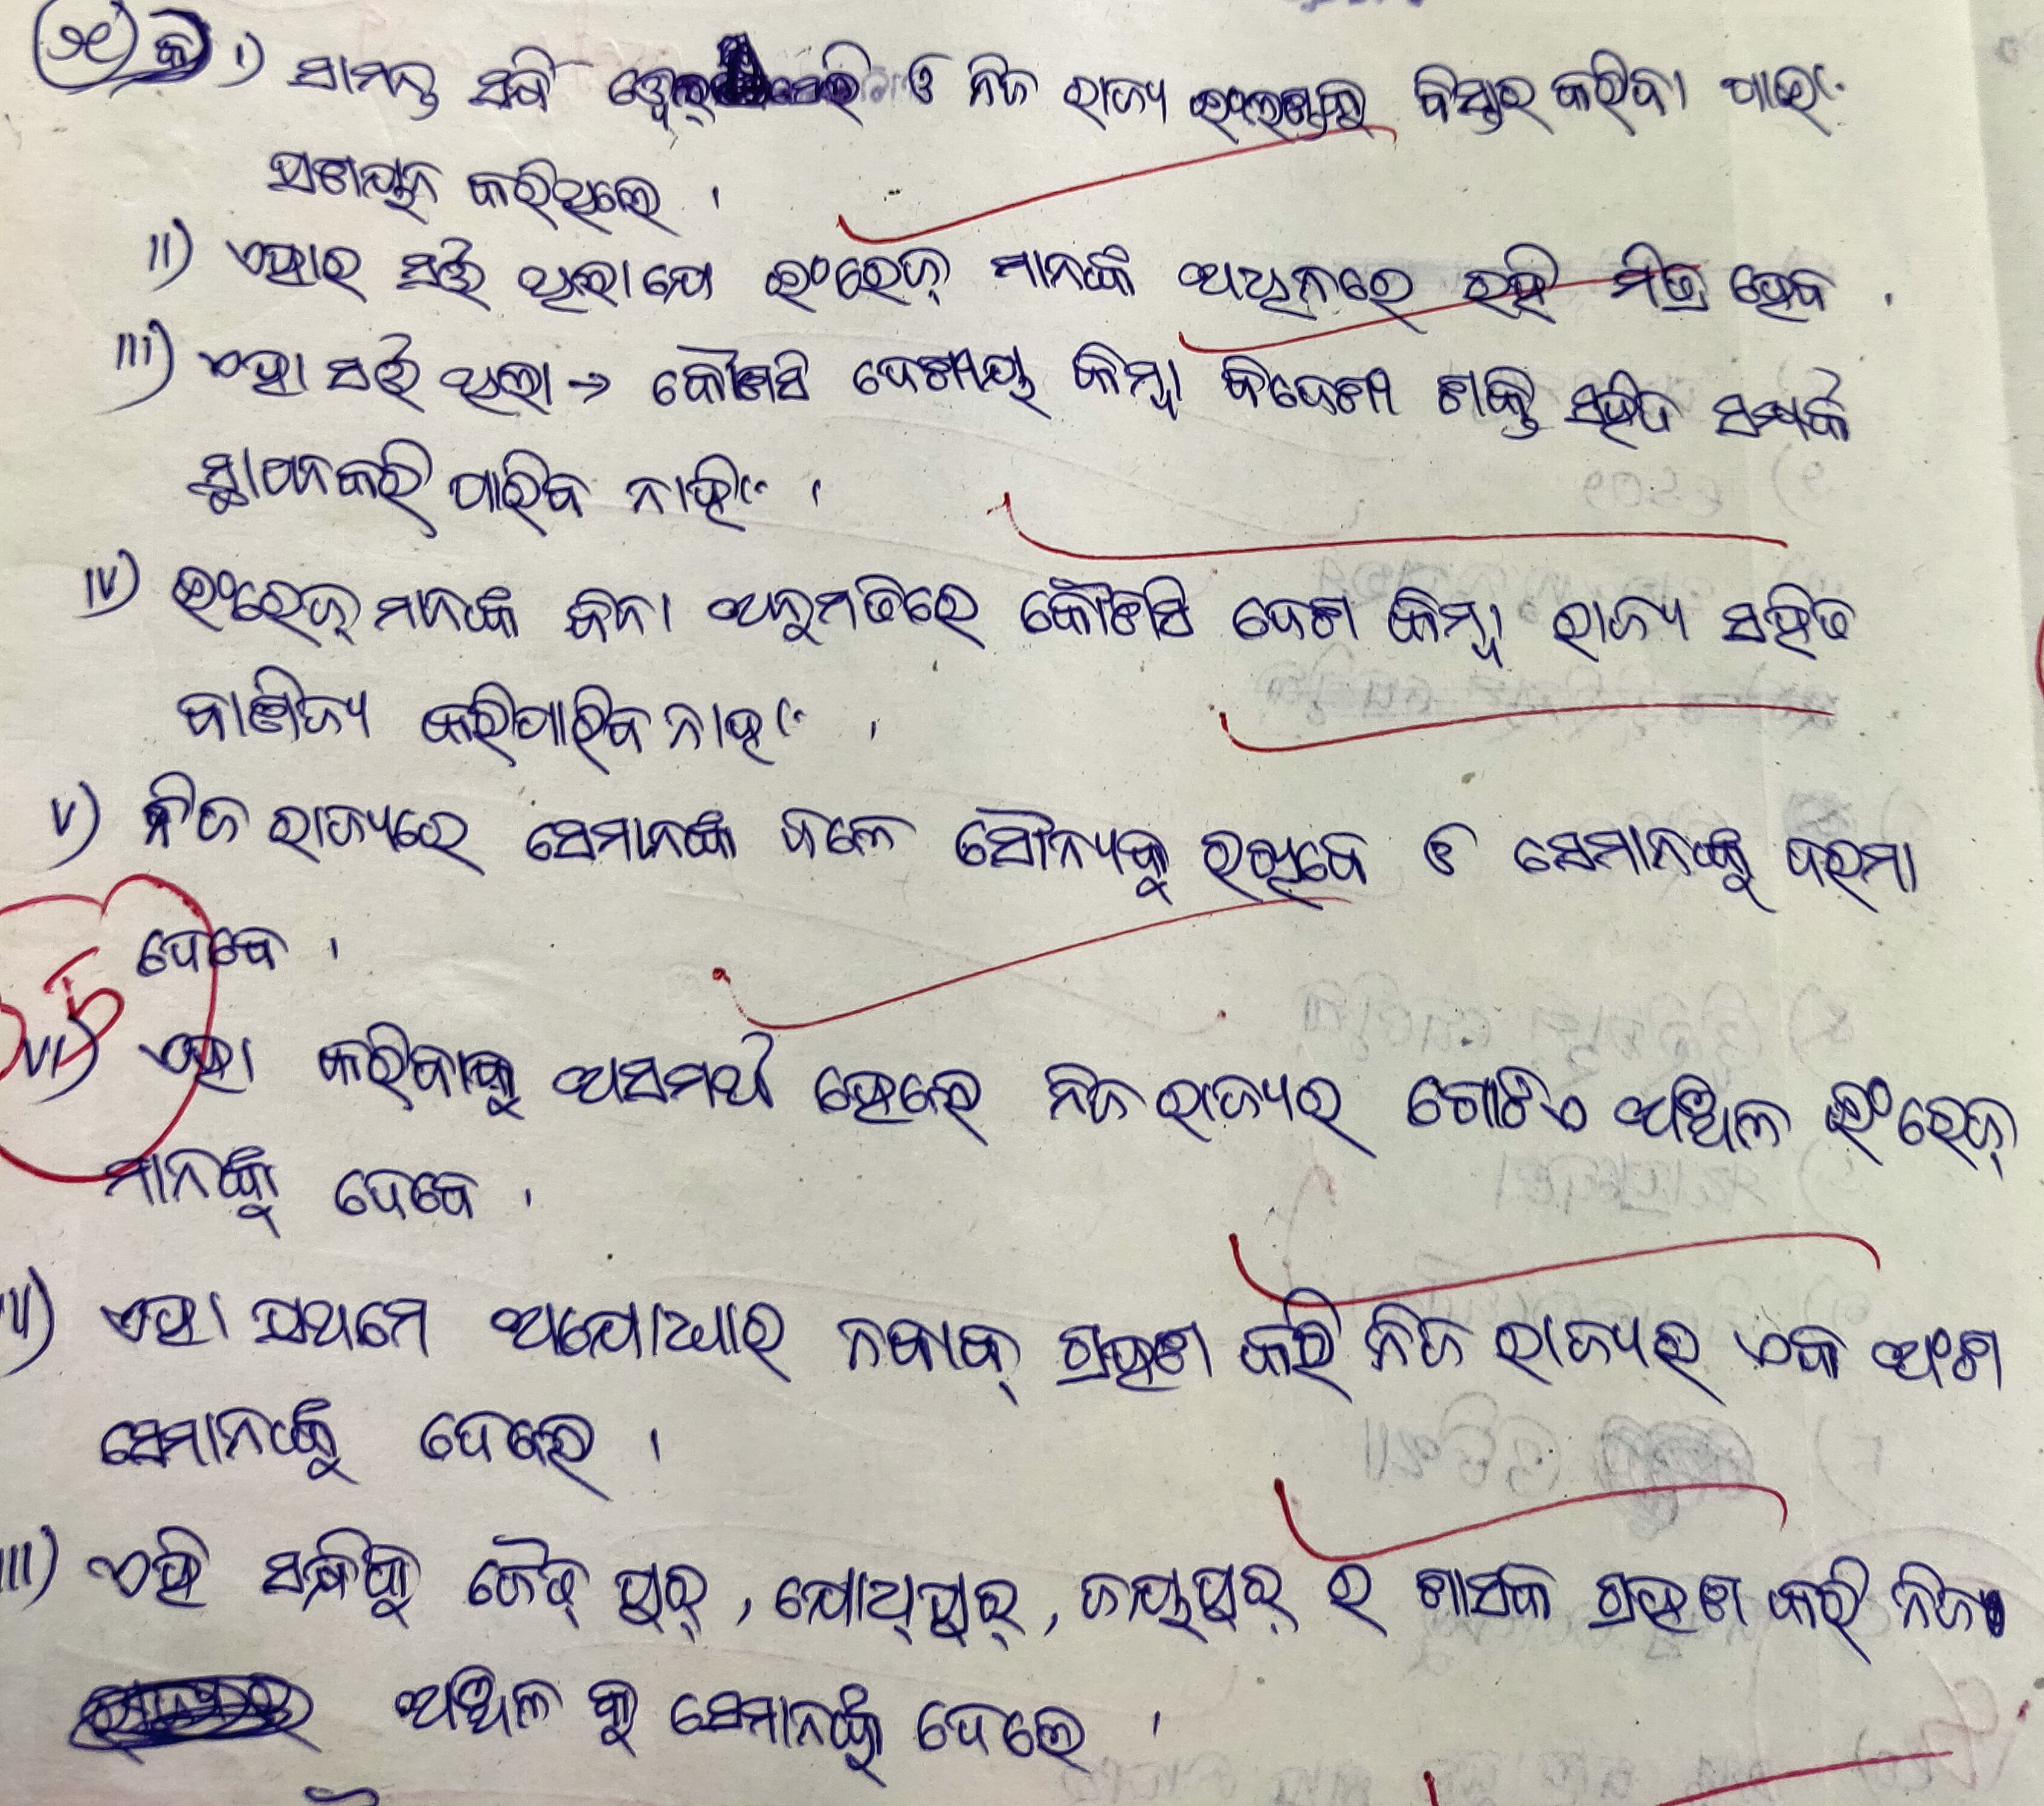 ୨୧) କ) i) ସାମନ୍ତ ସନ୍ଧି ଓ ନିଜ ରାଜ୍ୟ ବିସ୍ତାର କରିବା ପାଇଁ
ପ୍ରଣୟନ କରିଥିଲେ ।
ii) ଏହାର ସର୍ତ୍ତ ଥିଲା ଯେ ଇଂରେଜ୍ ମାନଙ୍କ ଅଧିନରେ ରହି ମିତ୍ର ହେବ ।
iii) ଏହା ସର୍ତ୍ତ ଥିଲା → କୌଣସି ଦେଶୀୟ କିମ୍ବା ବିଦେଶୀ ଶକ୍ତି ସହିତ ସମ୍ପର୍କ
ସ୍ଥାପନ କରି ପାରିବ ନାହିଁ ।
iv) ଇଂରେଜ୍ ମାନଙ୍କ ବିନା ଅନୁମତିରେ କୌଣସି ଦେଶ କିମ୍ବା ରାଜ୍ୟ ସହିତ
ବାଣିଜ୍ୟ କରିପାରିବ ନାହିଁ ।
v) ନିଜ ରାଜ୍ୟରେ ସେମାନଙ୍କ ଦଳେ ସୈନ୍ୟକୁ ରଖିବେ ଓ ସେମାନଙ୍କୁ ଦରମା
ଦେବେ ।
vi) ଏହା କରିବାକୁ ଅସମର୍ଥ ହେଲେ ନିଜ ରାଜ୍ୟର ଗୋଟିଏ ଅଞ୍ଚଳ ଇଂରେଜ୍
ମାନଙ୍କୁ ଦେବେ ।
ଏହା ପ୍ରଥମେ ଅଯୋଧ୍ୟାର ନବାବ୍ ଗ୍ରହଣ କରି ନିଜ ରାଜ୍ୟର ଏକ ଅଂଶ
ସେମାନଙ୍କୁ ଦେଲେ ।
ଏହି ସନ୍ଧିକୁ ପୁର୍, ଯୋଧ୍‌ପୁର୍, ଜୟପୁର୍ ର ଶାସକ ଗ୍ରହଣ କରି ନିଜ
ଅଞ୍ଚଳ କୁ ସେମାନଙ୍କୁ ଦେଲେ ।